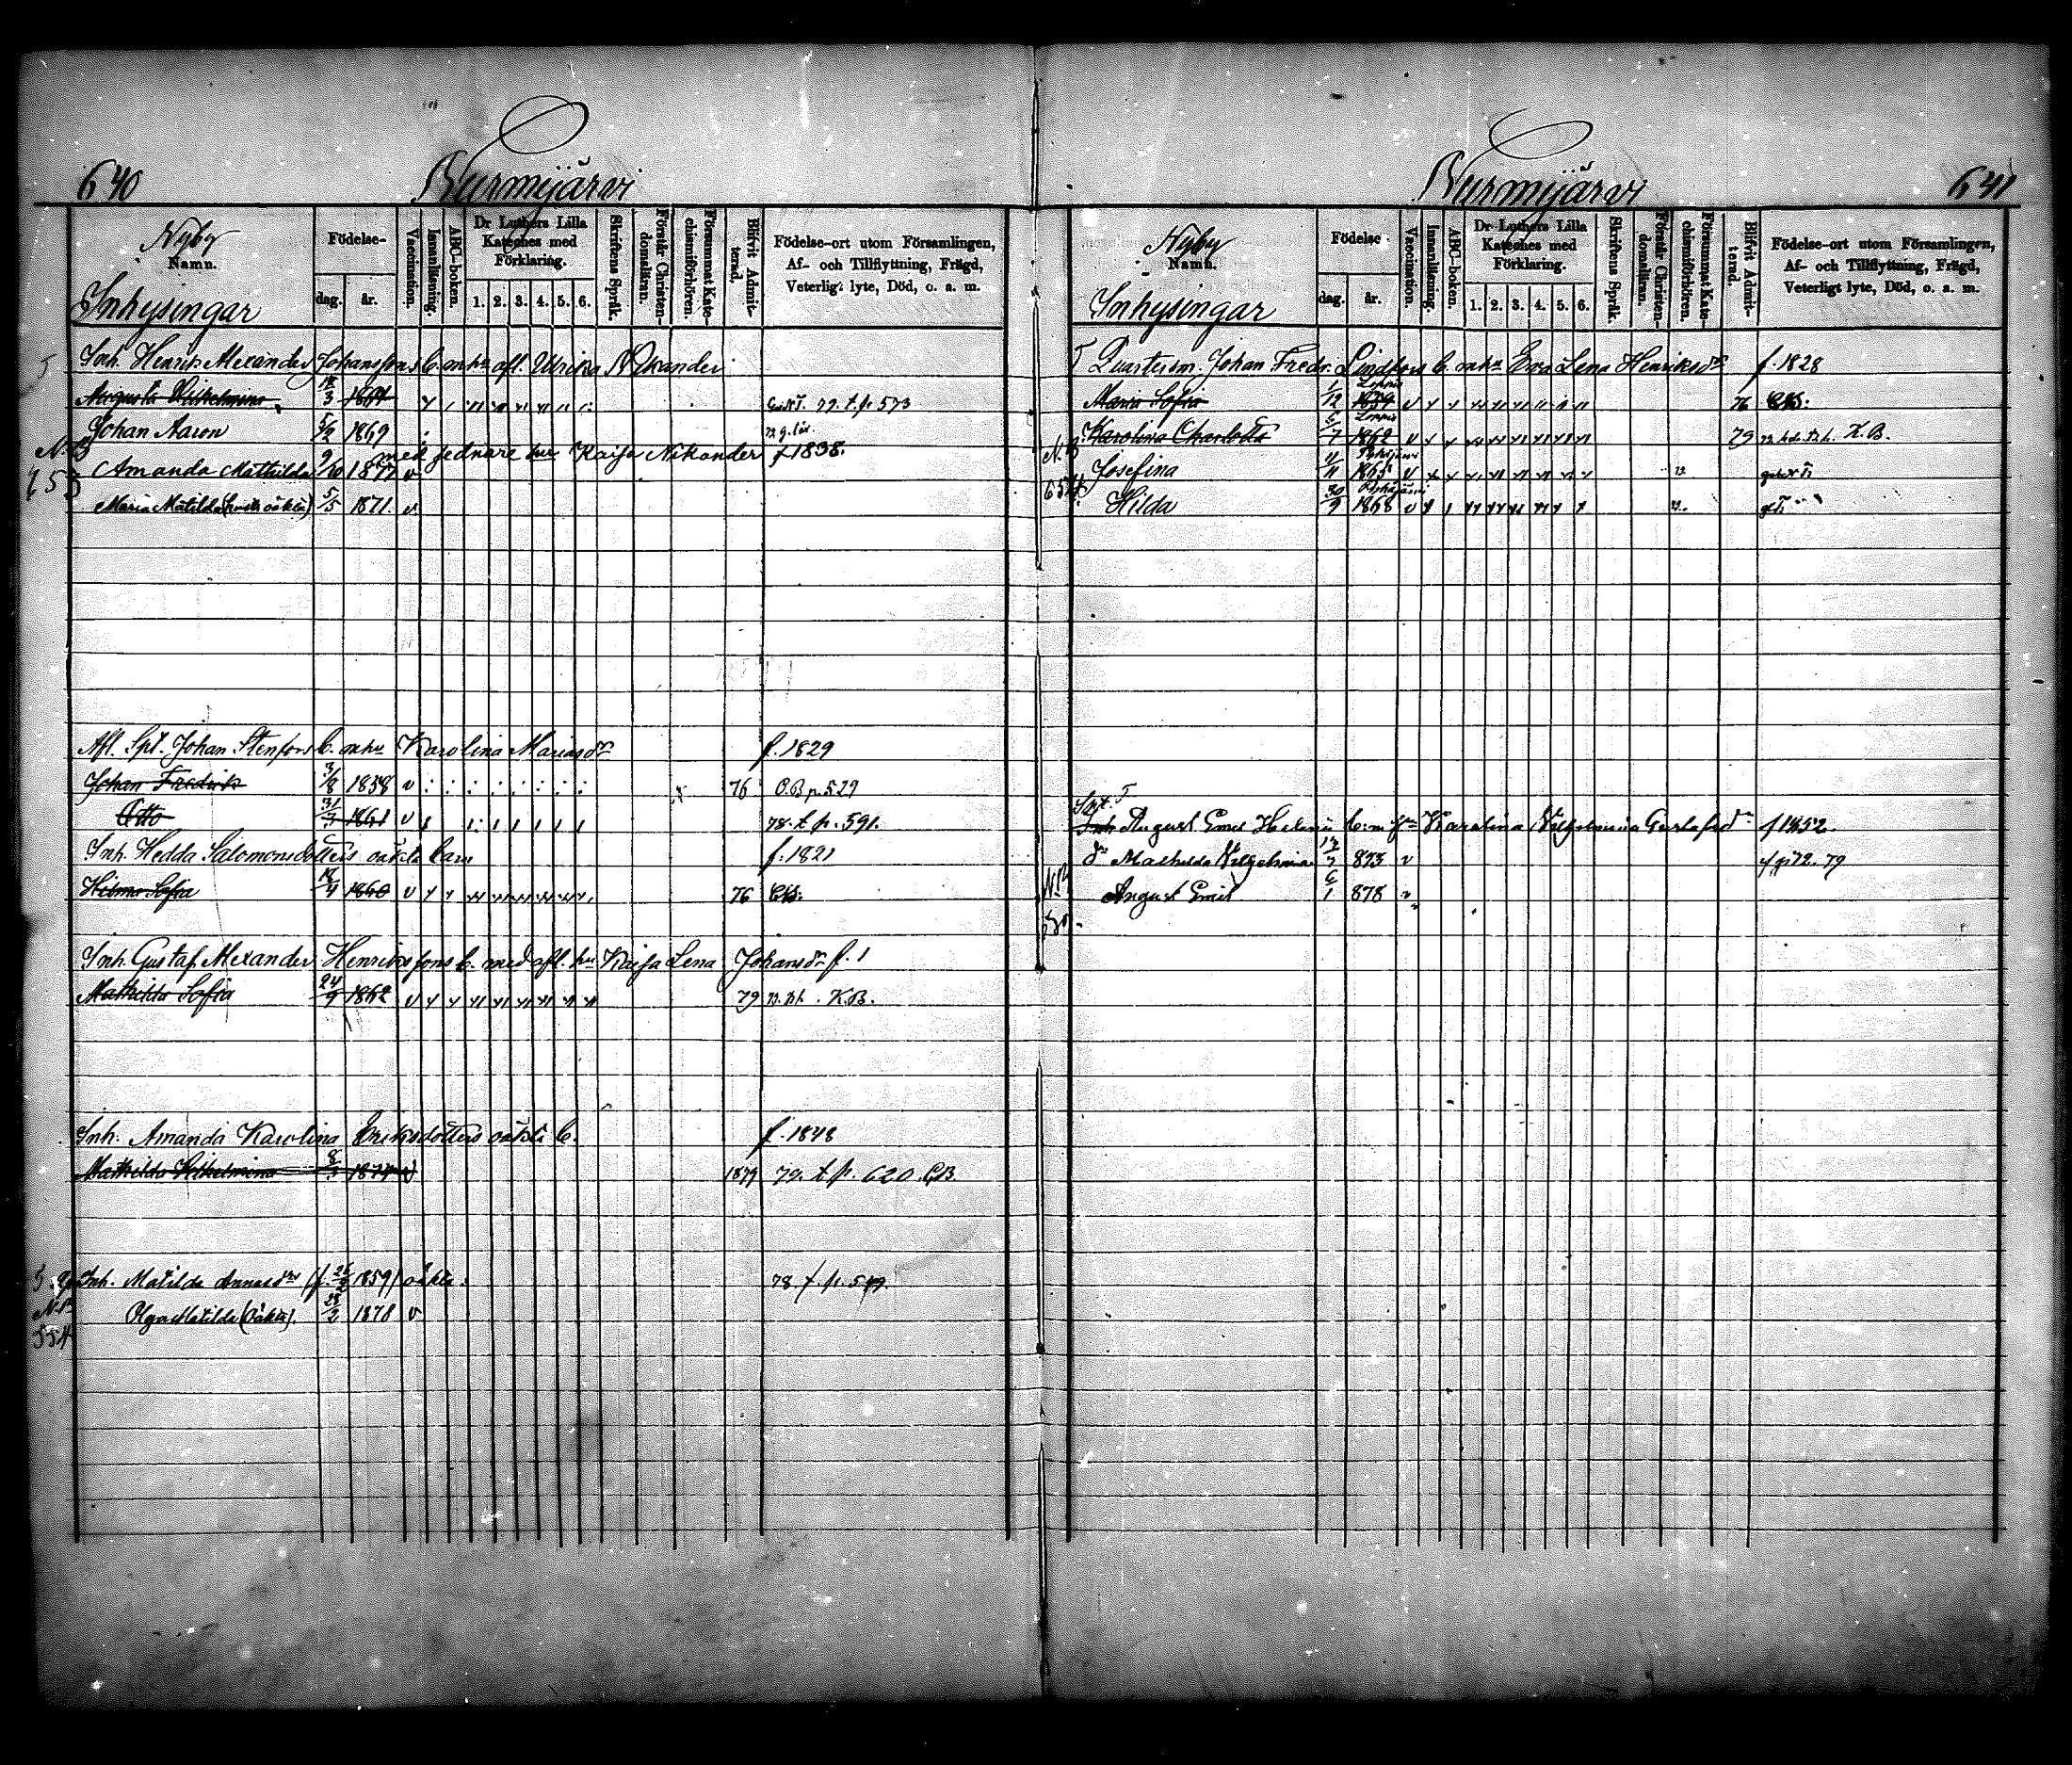 640
Nurmijärvi
Nyby
Namn.
Inhysingar
Födelse-
dag.
år.
Vaccination.
Innanläsning.
ABC-boken.
Dr Luthers Lilla
Kateches med
Förklaring.
1. 2. 3. 4. 5. 6.
Skriftens Språk.
Förstår Christen-
domsläran.
Försummat Kate-
chismiförhören.
Blifvit Admit-
terad.
Födelse-ort utom Församlingen,
Af- och Tillflyttning, Frägd,
Veterligt lyte, Död, o. a. m.
Inh. Henrik Alexander Johanssons b. m. hu afl. Ulrika Nikander
Augusta Wilhelmina 18/3 1864 79. t. p. 573
Johan Aaron 5/2 1869
med sednare hu Kaisa Nikander f 1838.
N.B
653
Amanda Mathilda 9/10 1877 v
Maria Matilda (hust. oäkta) 5/5 1871 v
Afl. Spt. Johan Stenfors b. m. hu Karolina Mariasdr f. 1829
Johan Fredrik 3/8 1858 v 76 C.B p. 529
Otto 31/7 1861 v 78. t. p. 591.
Inh. Hedda Salomonsdotters oäkta barn f. 1821
Hilma Sofia 18/4 1860 v 76 CB:
Inh. Gustaf Alexander Henrikssons b. med afl. hu Kaisa Lena Johansdr f. 1
Mathilda Sofia 24/9 1862 v 79 K.B.
Inh. Amanda Karolina Eriksdotters oäkta b. f. 1848
Mathilda Wilhelmina 8/3 1874 v 1879 79. t. p. 620. CB.
Inh. Matilda Annasdr (f. 1859) oäkta: 78 f. p. 549.
N.B
554
Olga Matilda (oäkta). 28/2 1878 v
Nurmijärvi
641
Nyby
Namn.
Inhysingar
Födelse
dag.
år.
Vaccination.
Innanläsning.
ABC-boken.
Dr Luthers Lilla
Kateches med
Förklaring.
1. 2. 3. 4. 5. 6.
Skriftens Språk.
Förstår Christen-
domsläran.
Försummat Kate-
chismiförhören.
Blifvit Admit-
terad.
Födelse-ort utom Församlingen,
Af- och Tillflyttning, Frägd,
Veterligt lyte, Död, o. a. m.
Johan Fredr. Lindfors b. m. hu Eva Lena Henriksdr f. 1828
Maria Sofia 1/12 Loppis 1859 v 76 CB:
Karolina Charlotta 5/7 Loppis 1862 v 79 K.B.
N.B
Josefina 4/11 1865 v
654
Hilda 30/9 1868 v
Spt. T
Inh August Emil Helenii b. m. hu Karolina Wilhelmina Gustafsdr f 1852.
dr Mathilda Wilhelmina 17/7 873 v f p 72. 79
N.B
August Emil 6/1 878 v